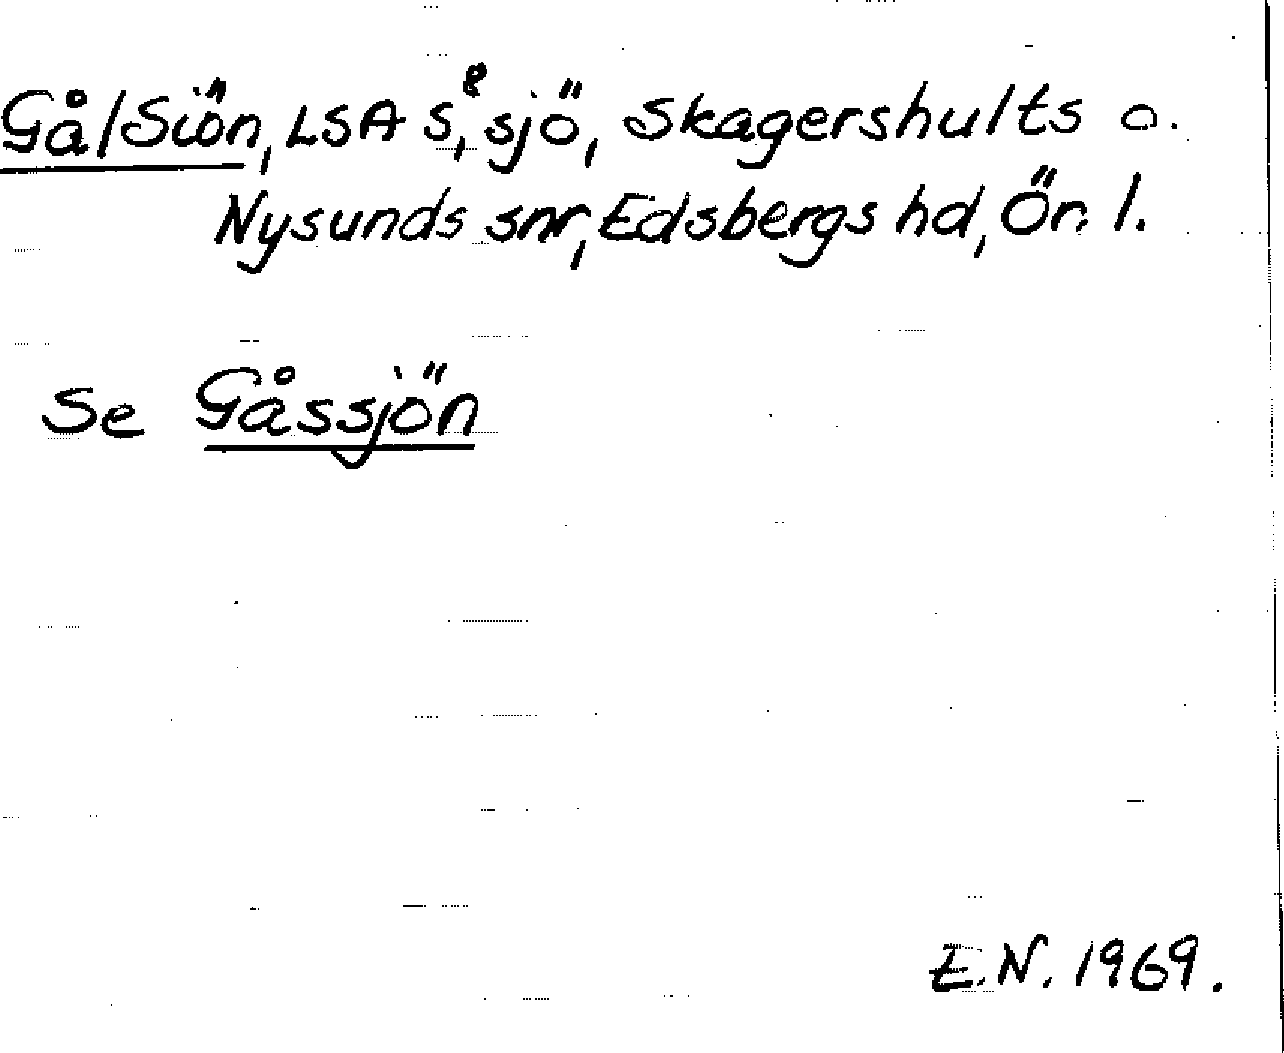 GålSiön, LSA S,⁸ sjö, Skagershults o.
Nysunds snr, Edsbergs hd, Ör. l.
Se Gåssjön
E.N. 1969.